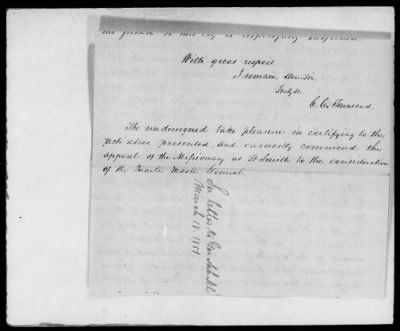 our friends in this city is respectfully
With great respect
I remain, Dear Sir
Truly &c.
C. C. Townsend.
The undersigned take pleasure in certifying to the
facts above presented, and earnestly commend the
appeal of the Missionary at Ft Smith to the consideration
of the Quarter Master General
See letter to Gen
March 19. 1851.